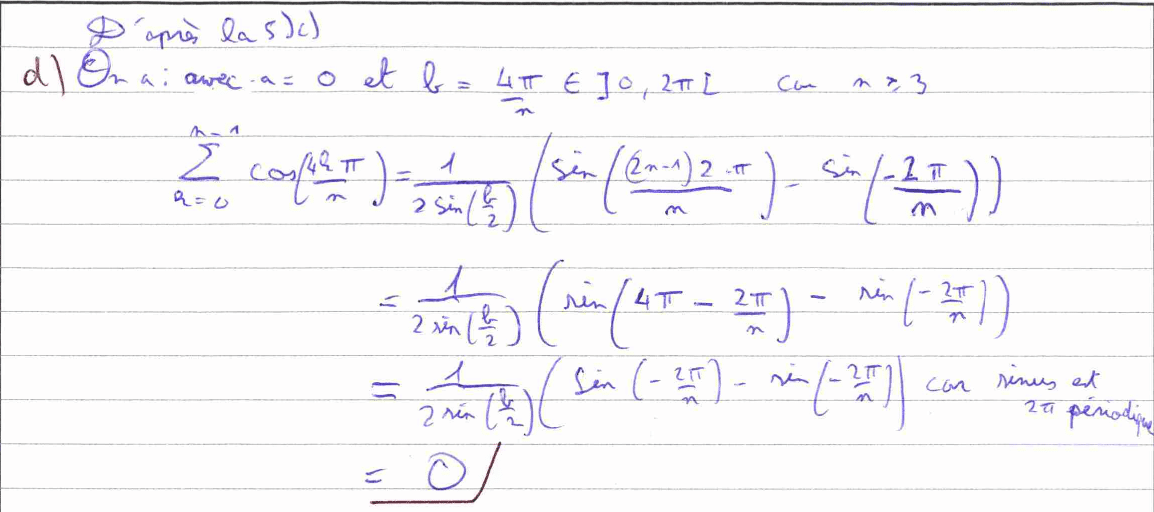 D'après la 5)c)
d) On a : avec a = 0 et b = 4π/n ∈ ]0, 2π[ car n ≥ 3
∑_{k=0}^{n-1} cos(4kπ/n) = 1/(2 sin(b/2)) (sin((2n-1)2π/n) - sin(-2π/n))
= 1/(2 sin(b/2)) (sin(4π - 2π/n) - sin(-2π/n))
= 1/(2 sin(b/2)) (sin(-2π/n) - sin(-2π/n)) car sinus est 2π périodique
= 0